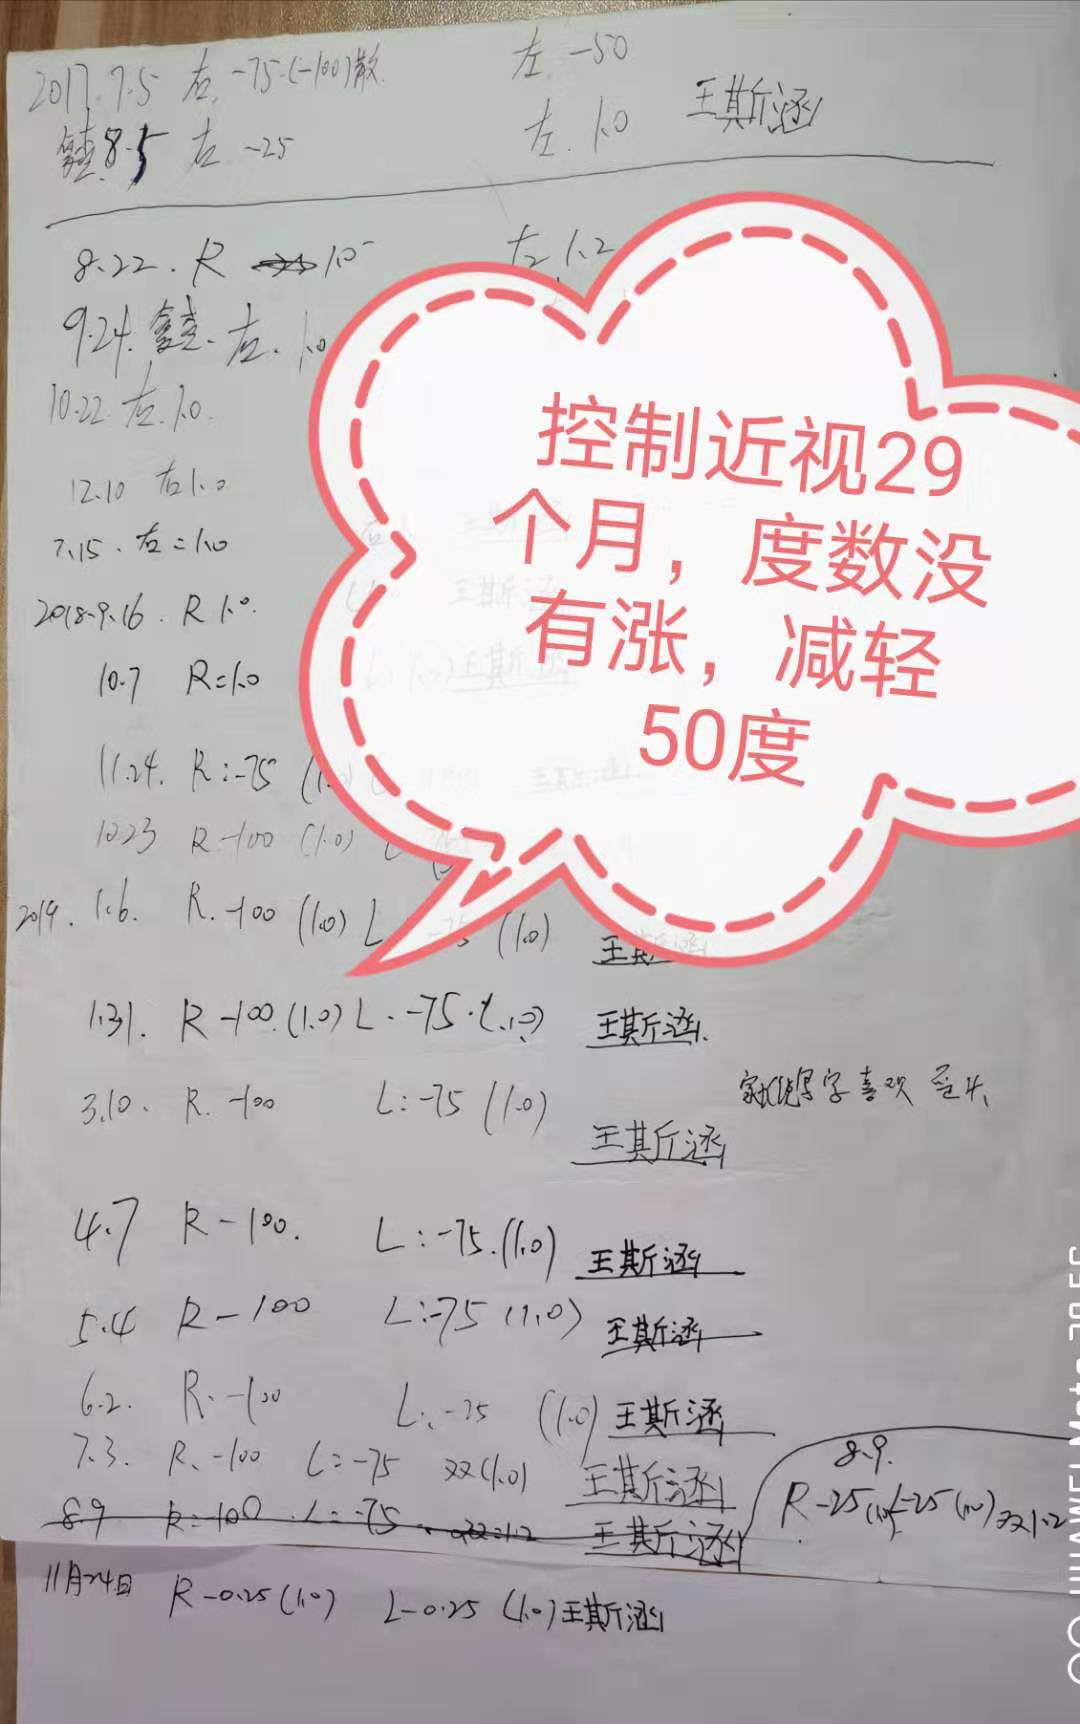 2017.7.5 右.-75.(-100)散 左.-50
8.5 右 -25 左.1.0 王斯涵
8.22. R 1.0- 左1.2
9.24. 右.1.0
10.22 右.1.0.
12.10 右1.0
7.15. 右=1.0
2018.9.16. R 1.0.
10.7 R=1.0
11.24. R:-75 (1.0)
10.23 R-100 (1.0)
2019. 1.6. R.-100 (1.0) L -75 (1.0) 王斯涵
1.31. R-100.(1.0) L.-75.(1.0) 王斯涵
3.10. R.-100 L:-75 (1.0) 王斯涵
写字喜欢
4.7 R-100. L:-75.(1.0) 王斯涵
5.4 R-100 L:-75 (1.0) 王斯涵
6.2. R.-100 L:-75 (1.0) 王斯涵
7.3. R.-100 L=-75 双(1.0) 王斯涵
8.9 R=-100 L=-75. 双=1.2 王斯涵
8.9.
R-25(1.0) L-25(1.0)双1.2
11月24日 R-0.25(1.0) L-0.25 (1.0)王斯涵
控制近视29
个月，度数没
有涨，减轻
50度
HUAWEI Mate 20 5G